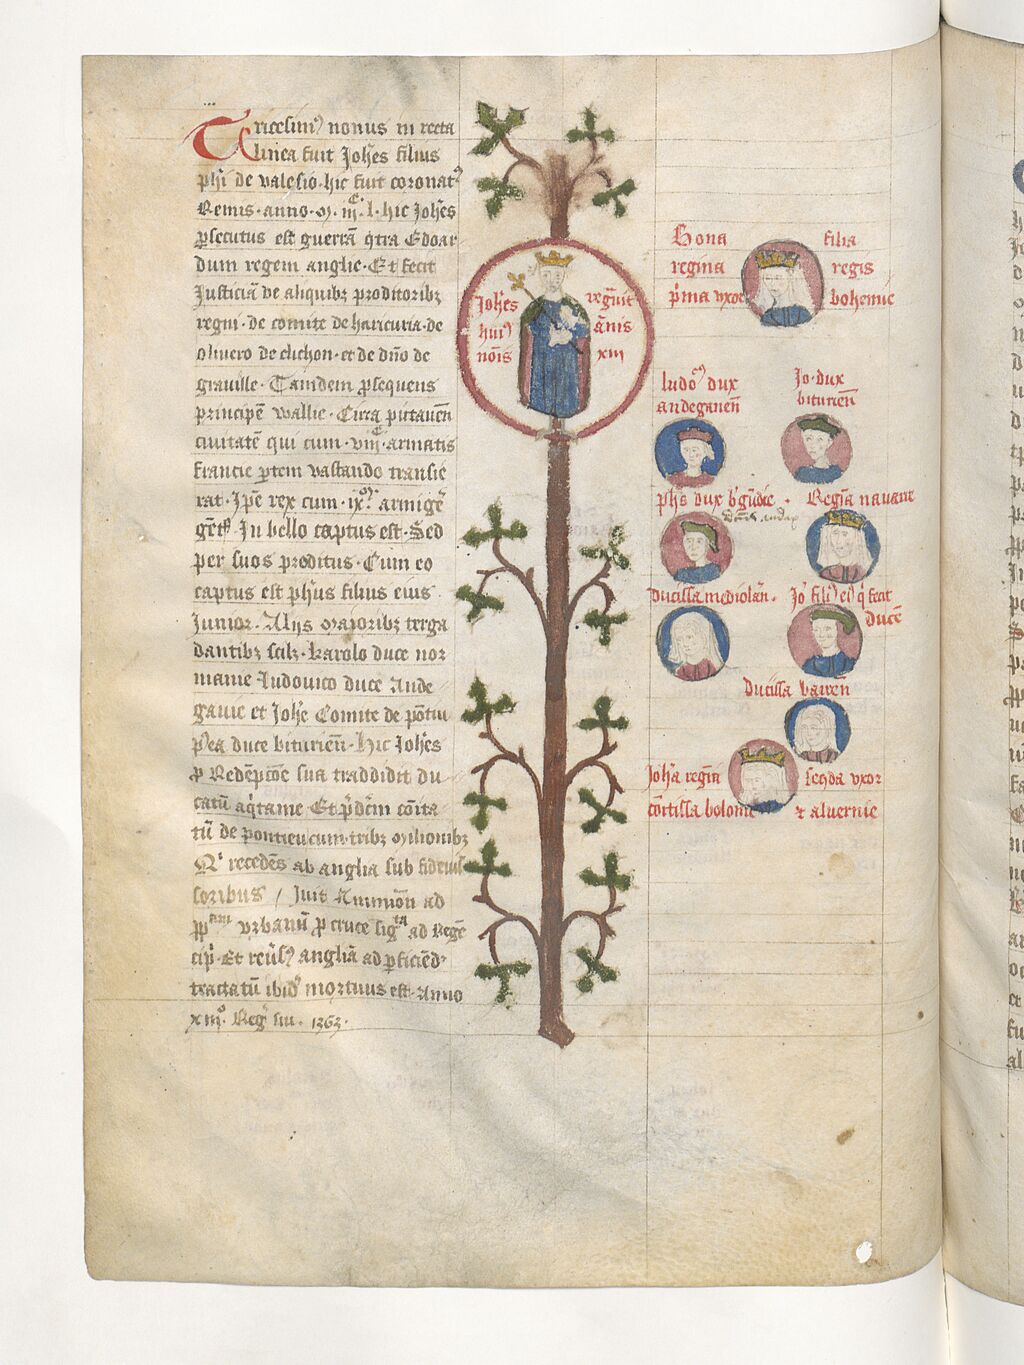 Tricesim9 nonus in recta
linea fuit Joh̄es filius
ph̄i de valesio · hic fuit coronat9
Remis · anno · m · iijc · l · hic Joh̄es
ꝓsecutus est guerrā ꝯtra Edoar
dum regem anglie · Et fecit
Justiciā de aliquibꝫ proditoribꝫ
regni · de comite de haricuria · de
olivero de clichon · et de dn̄o de
graville · Tamdem ꝓsequens
principē wallie · Circa pictauen̄
ciuitatē qui cum · viijc · armatis
francie ꝑtem vastando transie
rat · Ipē rex cum · ixm · armigē
In bello captus est · Sed
per suos proditus · Cum eo
captus est ph̄us filius eius
Junior · Alijs maioribꝫ terga
dantibꝫ scilꝫ · karolo duce nor
manie Ludouico duce Ande
gauie et Joh̄e Comite de pōtiu
postea duce bituriēn · Hic Joh̄es
ꝓ Redēpcōe sua traddidit du
catū aq̄tanie Et
tū de pontieu cum tribꝫ milionibꝫ
recedēs ab anglia sub fideius
soribus / Iuit Auinion̄ ad
ppam vrbanū ꝓ cruce sigta ad Rege
cip̄ · Et reūs9 angliā ad ꝑficiēd
tractatū ibid mortuus est · Anno
xiijo · Reḡ sui · 1363 ·
Joh̄es hui9 nōis
regnuit ānis xiij
Bona regina p̄ma vxor
filia regis bohemie
ludo9 dux andeganēn
Jo · dux bituriēn
ph̄s dux b'gūdie · Regīa nauarre
ducissa mediolān · Jo9 fili9 ei9 q̄ fecit
ducē
Ducissa barrēn
Joh̄a regīa secūda vxor
cōitissa bolonie ⁊ aluernie